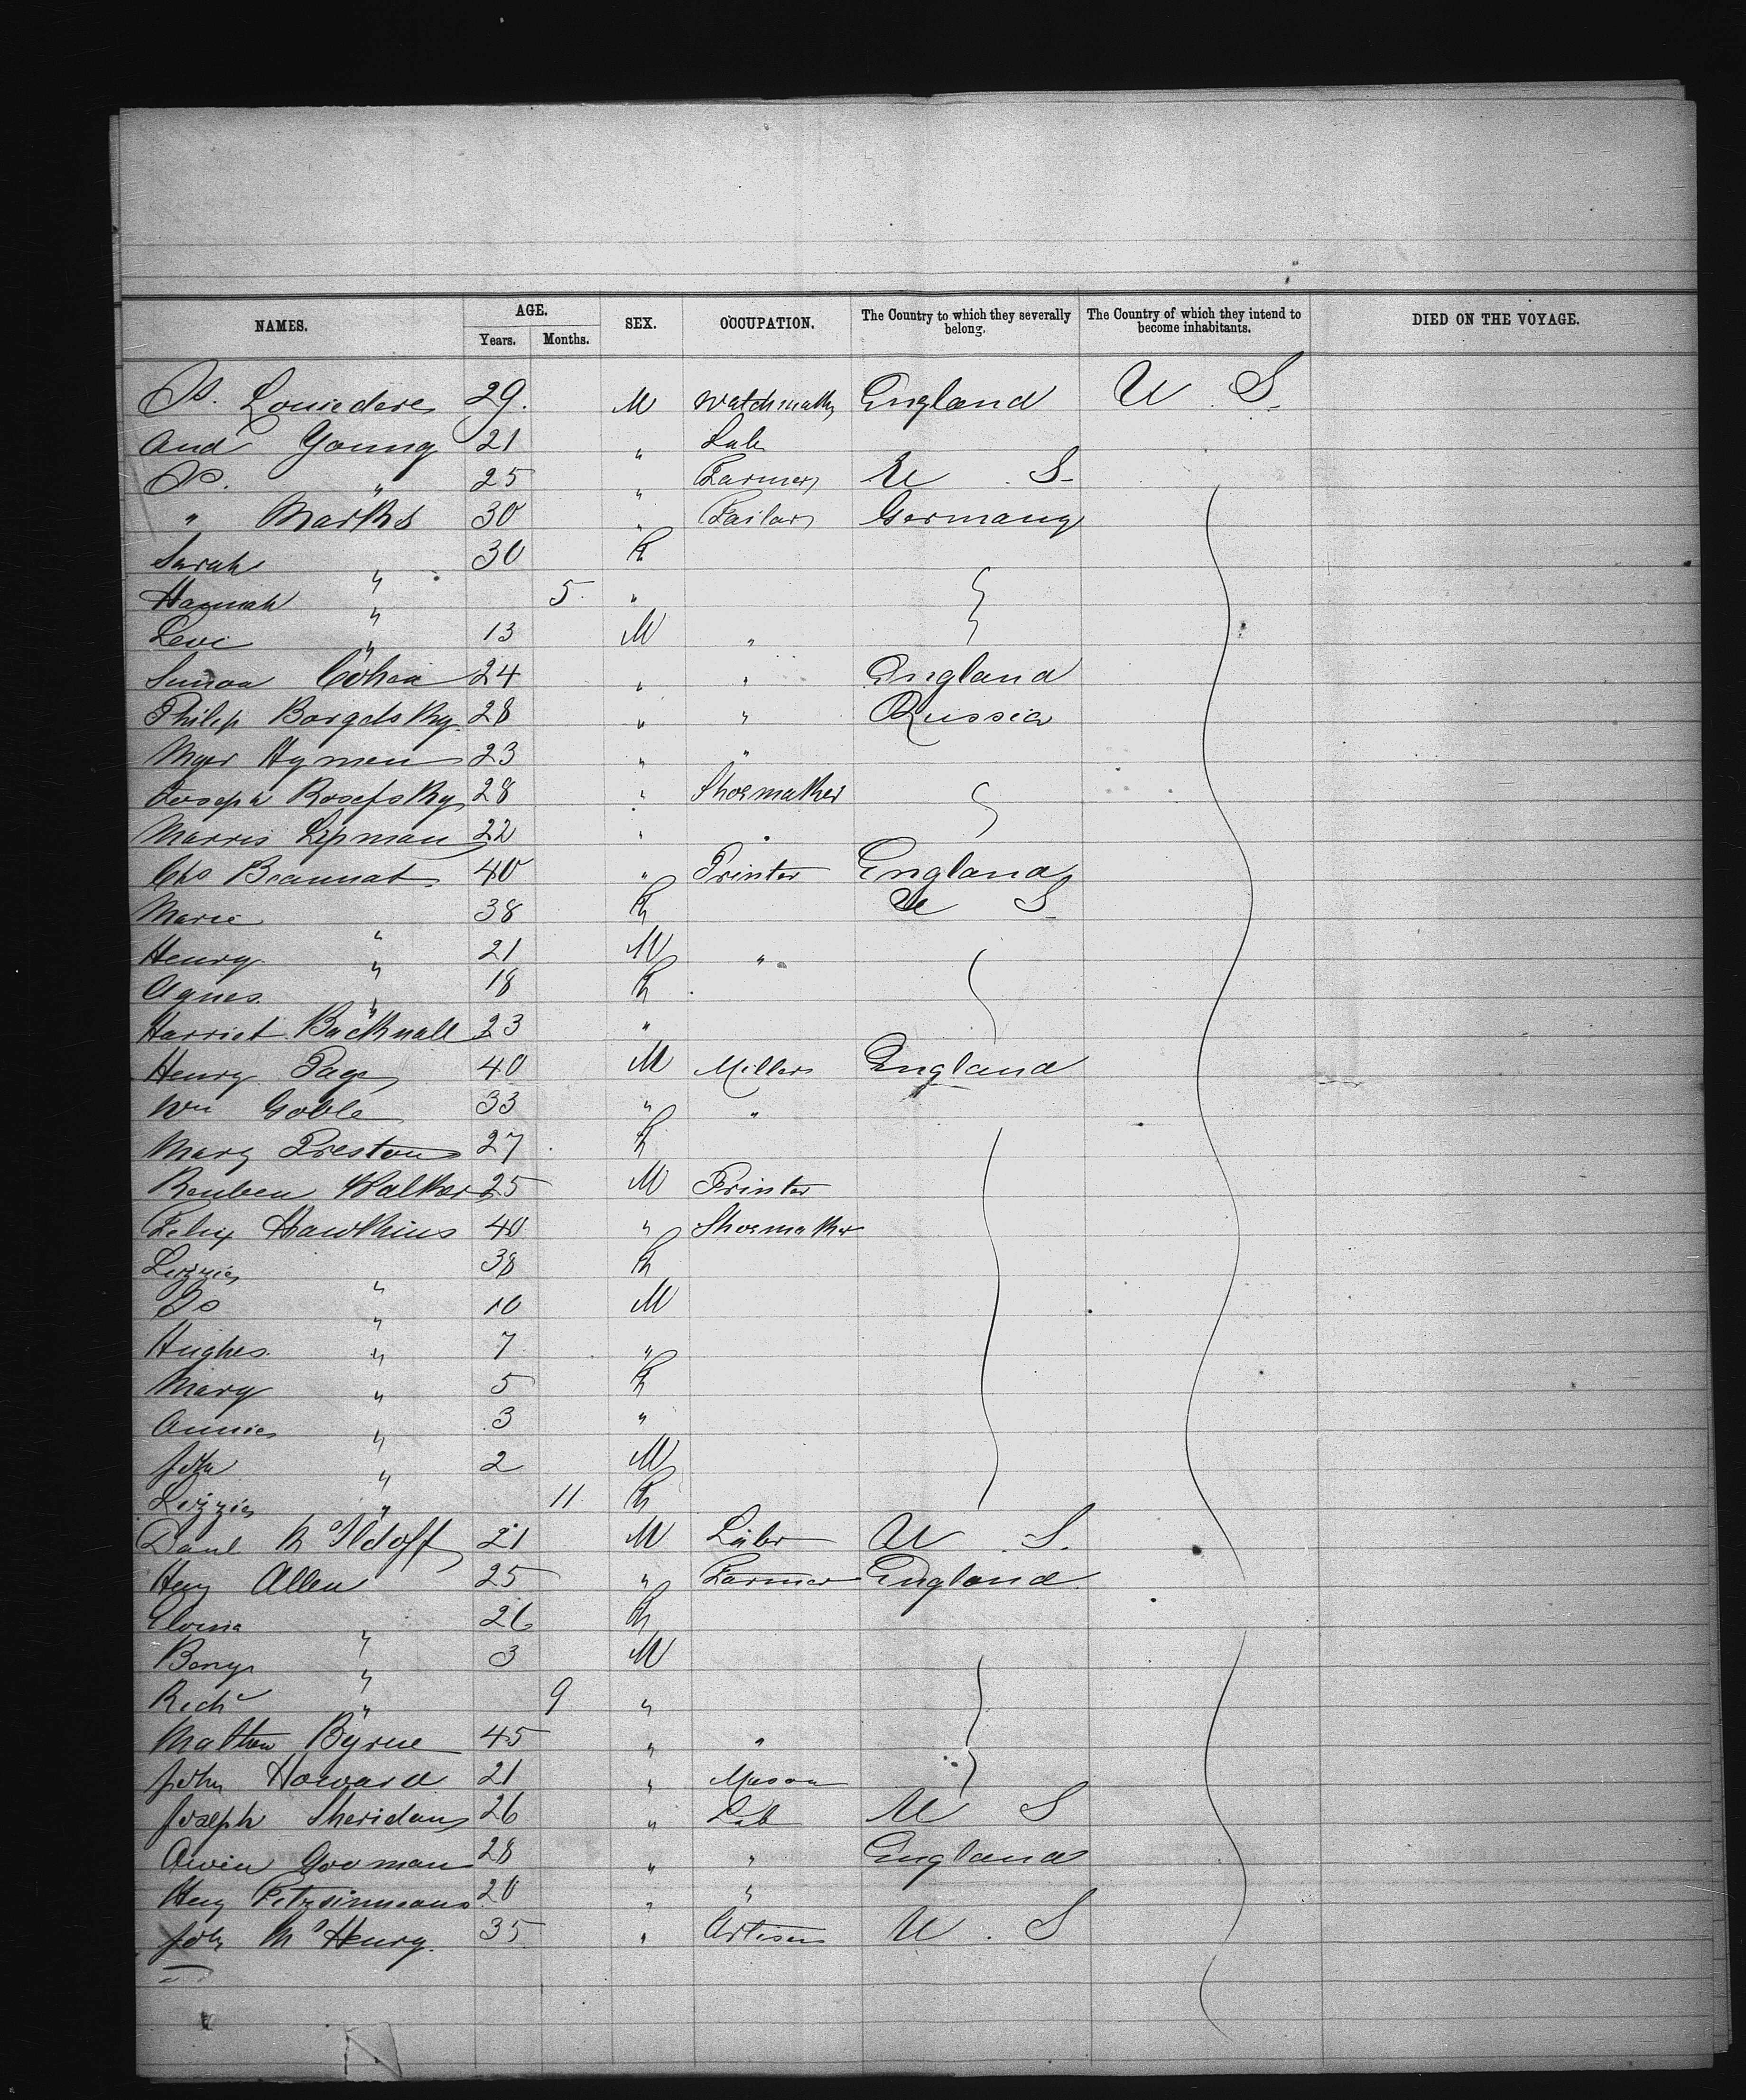 NAMES. AGE. Years. Months. SEX. OCCUPATION. The Country to which they severally belong. The Country of which they intend to become inhabitants. DIED ON THE VOYAGE.
29. M England U S
And Young 21 " Lab
" 25 " Farmer U S
" Marks 30 " Tailor Germany
Sarah " 30 F
Hannah " 5 "
Levi " 13 M "
Simon Cohen 24 " " England
Philip 28 " " Russia
Myer Hymen 23 " "
Joseph Rosefsky 28 " Shoemaker
Morris Lipman 22 " "
Chs 40 " Printer England
Marie " 38 F U S
Henry " 21 M "
Agnes " 18 F
Harriet Bucknall 23 "
Henry Page 40 M Miller England
Wm Goble 33 " "
Mary Preston 27 F
Reuben Walker 25 M Printer
Felix Hawkins 40 " Shoemaker
Lizzie " 38 F
" 10 M
Hughes " 7 "
Mary " 5 F
Annie " 3 "
John " 2 M
Lizzie " 11 F
Danl 21 M Labr U S.
Heny Allen 25 " Farmer England
" 26 F
Benj " 3 M
Richd " 9 "
Mathew Byrne 45 " "
John Howard 21 " Mason
Joseph Sheridan 26 " Lab U S
28 " " England
Heny Fitzsimmons 20 " "
John McHenry 35 " Artisan U S